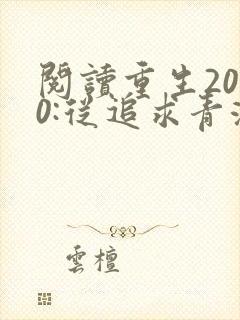 閱讀重生20
0:從追求青
雲檀